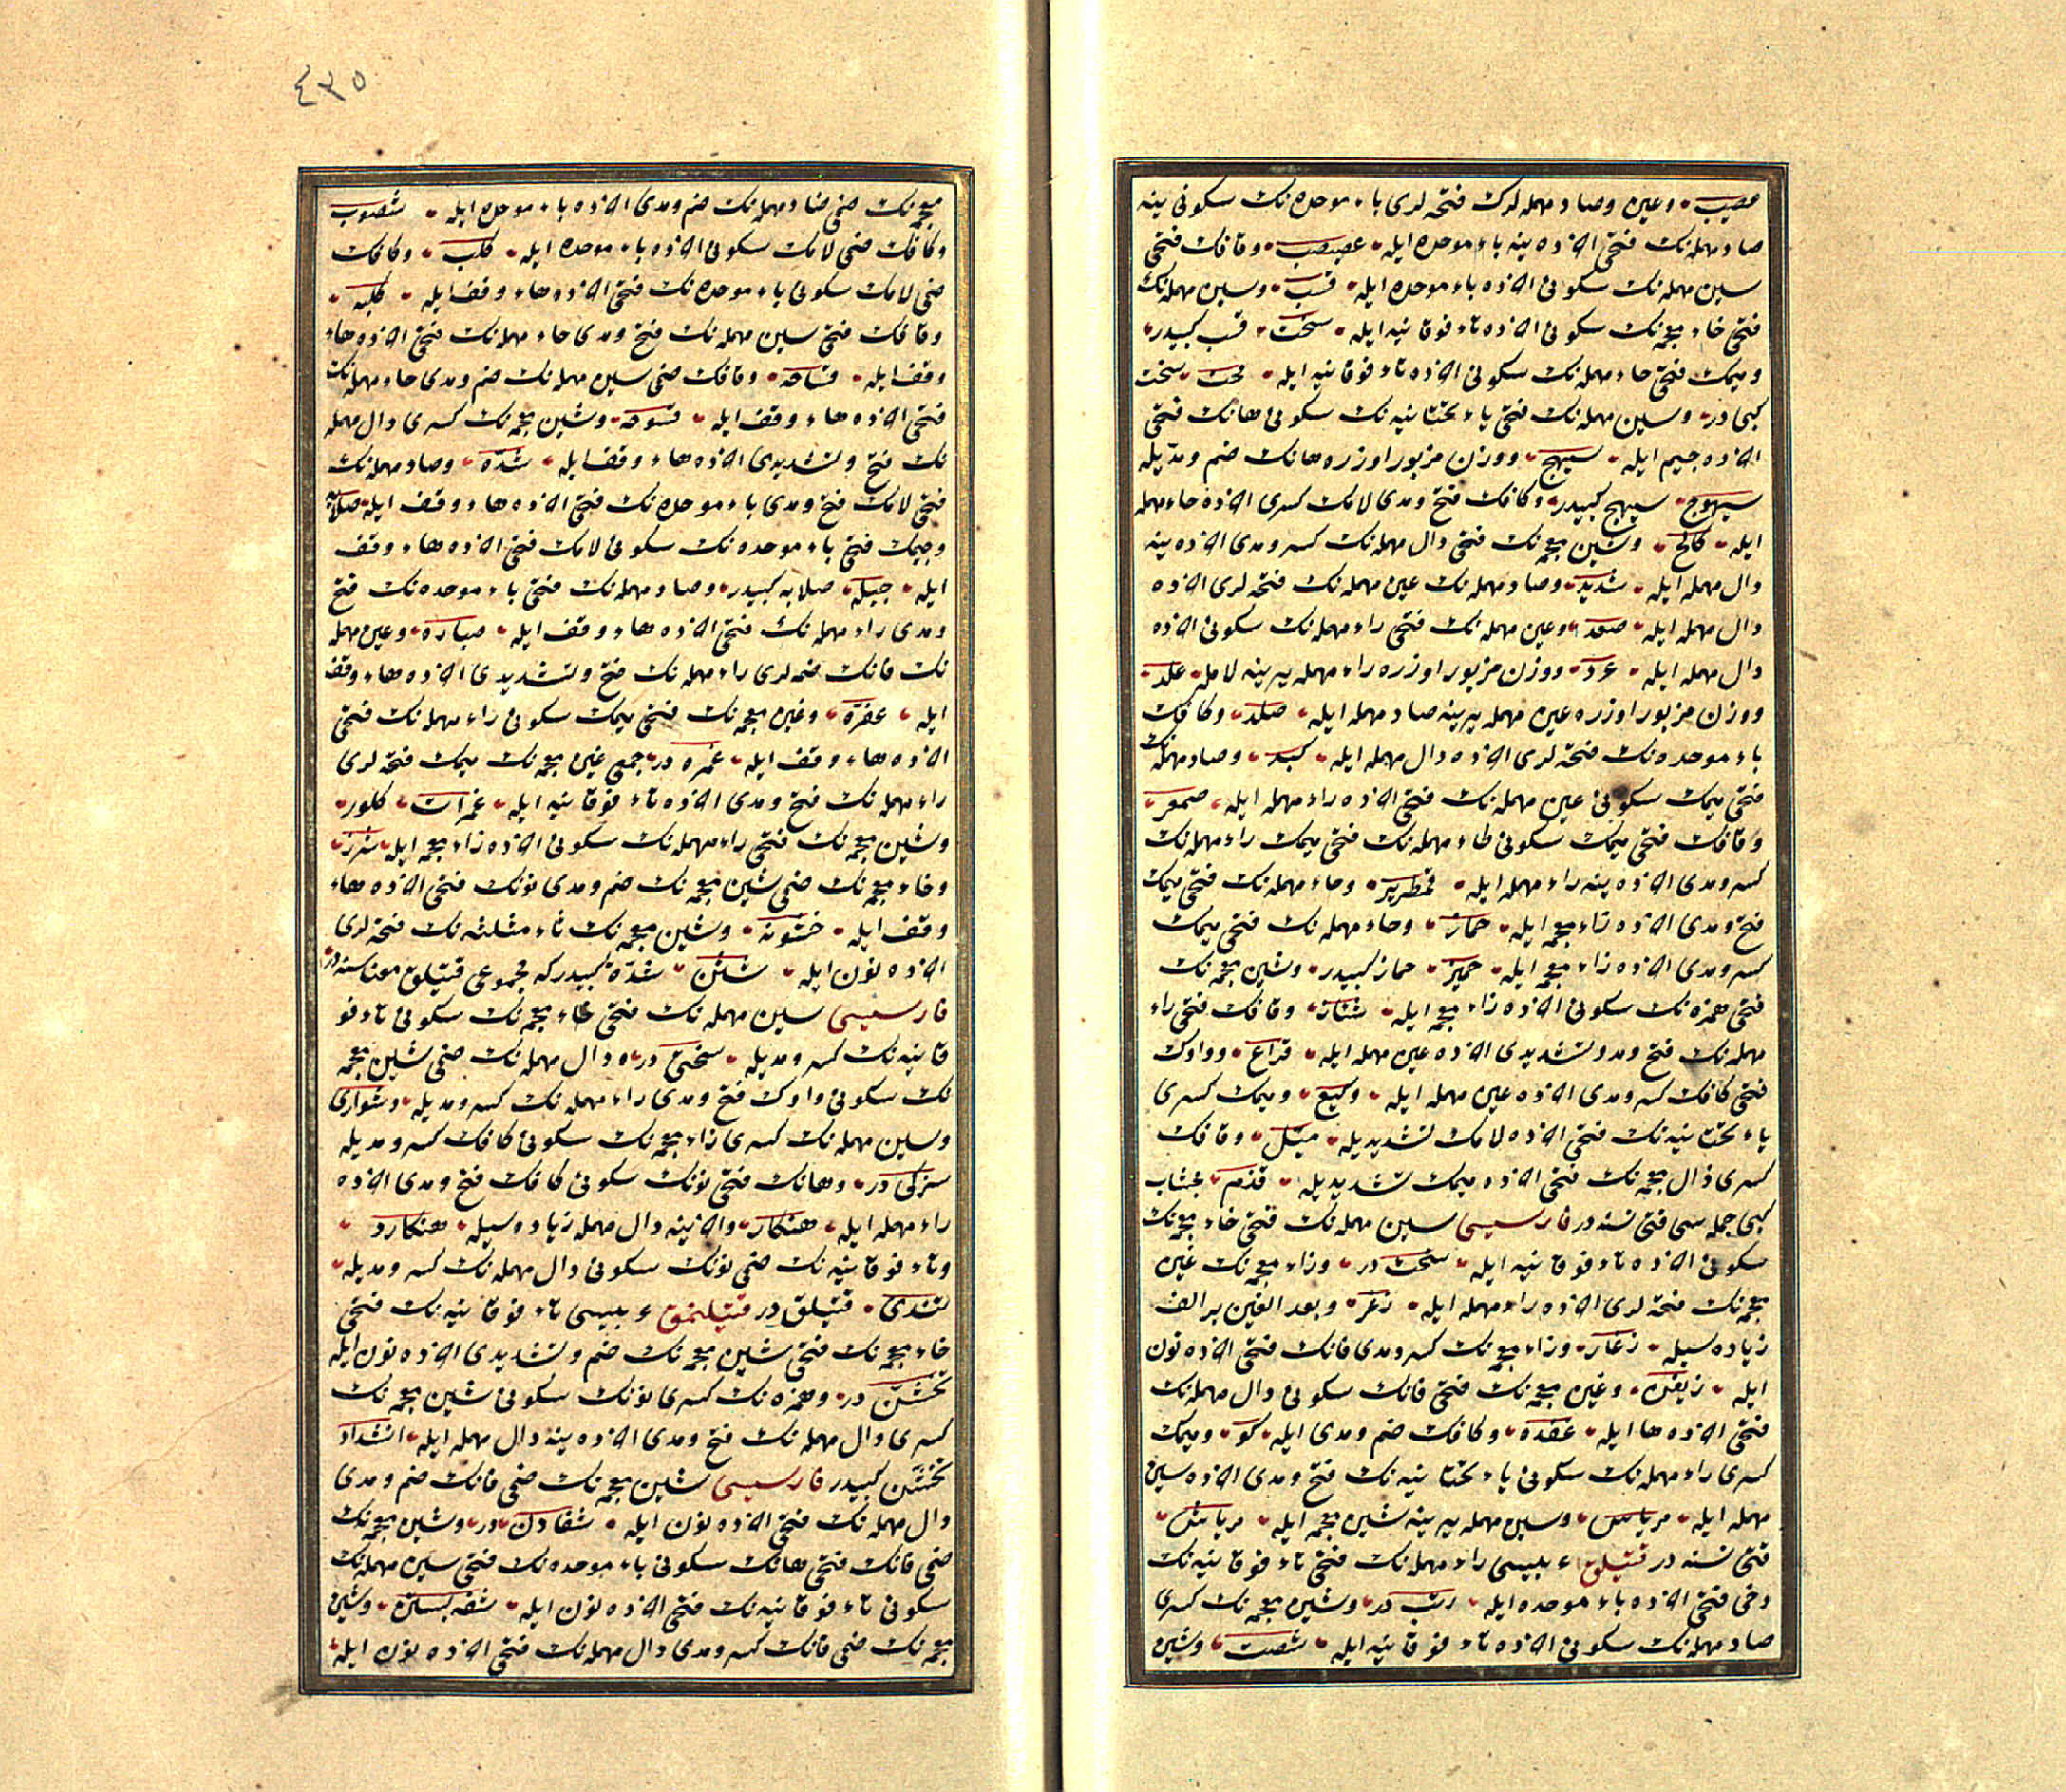 عصیب وعین وصاد مهمله لرک فتحه لری باء موحده نک سکونی ینه
صاد مهمله نک فتحی الاذه ینه باء موحده ایله عصبصب وقافک فتحی
سین مهمله نک سکونی الاذه باء موحده ایله قسب وسین مهمله نک
فتحی خاء معجمه نک سکونی الاذه تاء فوقانیه ایله سخت قسب کبیدر
ومیمک فتحی حاء مهمله نک سکونی الاذه تاء فوقانیه ایله محت سخت
کبی در وسین مهمله نک فتحی یاء تحتانیه نک سکونی هانک فتحی
الاذه جیم ایله سیهج ووزن مزبور اوزره هانک ضم ومدیله
سیهوج سیهج کبیدر وکافک فتح ومدی لامک کسری الاذه حاء مهمله
ایله کالح وشین معجمه نک فتحی دال مهمله نک کسر ومدی الاذه ینه
دال مهمله ایله شدید وصاد مهمله نک عین مهمله نک فتحه لری الاذه
دال مهمله ایله صعد وعین مهمله نک فتحی راء مهمله نک سکونی الاذه
دال مهمله ایله عرد ووزن مزبور اوزره راء مهمله یرینه لامله علد
ووزن مزبور اوزره عین مهمله یرینه صاد مهمله ایله صلد وکافک
باء موحده نک فتحه لری الاذه دال مهمله ایله کبد وصاد مهمله نک
فتحی میمک سکونی عین مهمله نک فتحی الاذه راء مهمله ایله صمعر
وقافک فتحی میمک سکونی طاء مهمله نک فتحی میمک راء مهمله نک
کسر ومدی الاذه ینه راء مهمله ایله قمطریر وحاء مهمله نک فتحی میمک
فتح ومدی الاذه زاء معجمه ایله حماز وحاء مهمله نک فتحی میمک
کسر ومدی الاذه زاء معجمه ایله حمیز حماز کبیدر وشین معجمه نک
فتحی همزه نک سکونی الاذه زاء معجمه ایله شأز وقافک فتحی راء
مهمله نک فتح ومد وتشدیدی الاذه عین مهمله ایله قراع وواوک
فتحی کافک کسر ومدی الاذه عین مهمله ایله وکیع ومیمک کسری
یاء تحتانیه نک فتحی الاذه لامک تشدیدیله میتل وقافک
کسری ذال معجمه نک فتحی الاذه میمک تشدیدیله قذم خشاب
کبی جمله سی قتی نسنه در فارسیسی سین مهمله نک فتحی خاء معجمه نک
سکونی الاذه تاء فوقانیه ایله سخت در وزاء معجمه نک غین
معجمه نک فتحه لری الاذه راء مهمله ایله زغر وبعد الغین بر الف
زیاده سیله زغار وزاء معجمه نک کسر ومدی فانک فتحی الاذه نون
ایله زیفن وغین معجمه نک فتحی فانک سکونی دال مهمله نک
فتحی الاذه ها ایله غفده وکافک ضم ومدی ایله کو ومیمک
کسری راء مهمله نک سکونی یاء تحتانیه نک فتح ومدی الاذه سین
مهمله ایله مریاس وسین مهمله یرینه شین معجمه ایله مریاش
قتی نسنه در قتیلق عربیسی راء مهمله نک فتحی تاء فوقانیه نک
دخی فتحی الاذه باء موحده ایله رتب در وشین معجمه نک کسری
صاد مهمله نک سکونی الاذه تاء فوقانیه ایله شصت وشین
٤٣٥
معجمه نک ضمی صاد مهمله نک ضم ومدی الاذه باء موحده ایله شصوب
وکافک ضمی لامک سکونی الاذه باء موحده ایله کلب وکافک
ضمی لامک سکونی باء موحده نک فتحی الاذه هاء وقف ایله کلبه
وقافک فتحی سین مهمله نک فتح ومدی حاء مهمله نک فتحی الاذه هاء
وقف ایله قساحه وقافک ضمی سین مهمله نک ضم ومدی حاء مهمله نک
فتحی الاذه هاء وقف ایله قسوحه وشین معجمه نک کسری دال مهمله
نک فتح وتشدیدی الاذه هاء وقف ایله شده وصاد مهمله نک
فتحی لامک فتح ومدی باء موحده نک فتحی الاذه هاء وقف ایله صلابه
وجیمک فتحی باء موحده نک سکونی لامک فتحی الاذه هاء وقف
ایله جبله صلابه کبیدر وصاد مهمله نک فتحی باء موحده نک فتح
ومدی راء مهمله نک فتحی الاذه هاء وقف ایله صباره وعین مهمله
نک فانک ضمه لری راء مهمله نک فتح وتشدیدی الاذه هاء وقف
ایله عفره وغین معجمه نک فتحی میمک سکونی راء مهمله نک فتحی
الاذه هاء وقف ایله غمره در جمعی غین معجمه نک میمک فتحه لری
راء مهمله نک فتح ومدی الاذه تاء فوقانیه ایله غمرات کلور
وشین معجمه نک فتحی راء مهمله نک سکونی الاذه زاء معجمه ایله شرز
وخاء معجمه نک ضمی شین معجمه نک ضم ومدی نونک فتحی الاذه هاء
وقف ایله خشونه وشین معجمه نک ثاء مثلثه نک فتحه لری
الاذه نون ایله شثن شده کبیدر که مجموعی قتیلق معناسنه در
فارسیسی سین مهمله نک فتحی خاء معجمه نک سکونی تاء فو
قانیه نک کسر ومدیله سختی در ودال مهمله نک ضمی شین معجمه
نک سکونی واوک فتح ومدی راء مهمله نک کسر ومدیله دشواری
وسین مهمله نک کسری زاء معجمه نک سکونی کافک کسر ومدیله
سزکی در وهانک فتحی نونک سکونی کافک فتح ومدی الاذه
راء مهمله ایله هنکار والاذ ینه دال مهمله زیاده سیله هنکارد
وتاء فوقانیه نک ضمی نونک سکونی دال مهمله نک کسر ومدیله
تندی قتیلق در قتیلنمق عربیسی تاء فوقانیه نک فتحی
خاء معجمه نک فتحی شین معجمه نک ضم وتشدیدی الاذه نون ایله
تخشن در وهمزه نک کسری نونک سکونی شین معجمه نک
کسری دال مهمله نک فتح ومدی الاذه ینه دال مهمله ایله انشداد
تخشن کبیدر فارسیسی شین معجمه نک ضمی فانک ضم ومدی
دال مهمله نک فتحی الاذه نون ایله شفادن در وشین معجمه نک
ضمی فانک فتحی هانک سکونی باء موحده نک فتحی سین مهمله نک
سکونی تاء فوقانیه نک فتحی الاذه نون ایله شفه بستن وشین
معجمه نک ضمی فانک کسر ومدی دال مهمله نک فتحی الاذه نون ایله